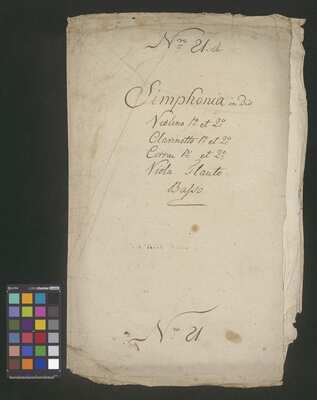 Nro 21.
Simphonia in Dis
Violino 1º et 2º
Clarinetto 1º et 2º
Cornu 1º et 2º
Viola Flauto
Basso
Nro 21